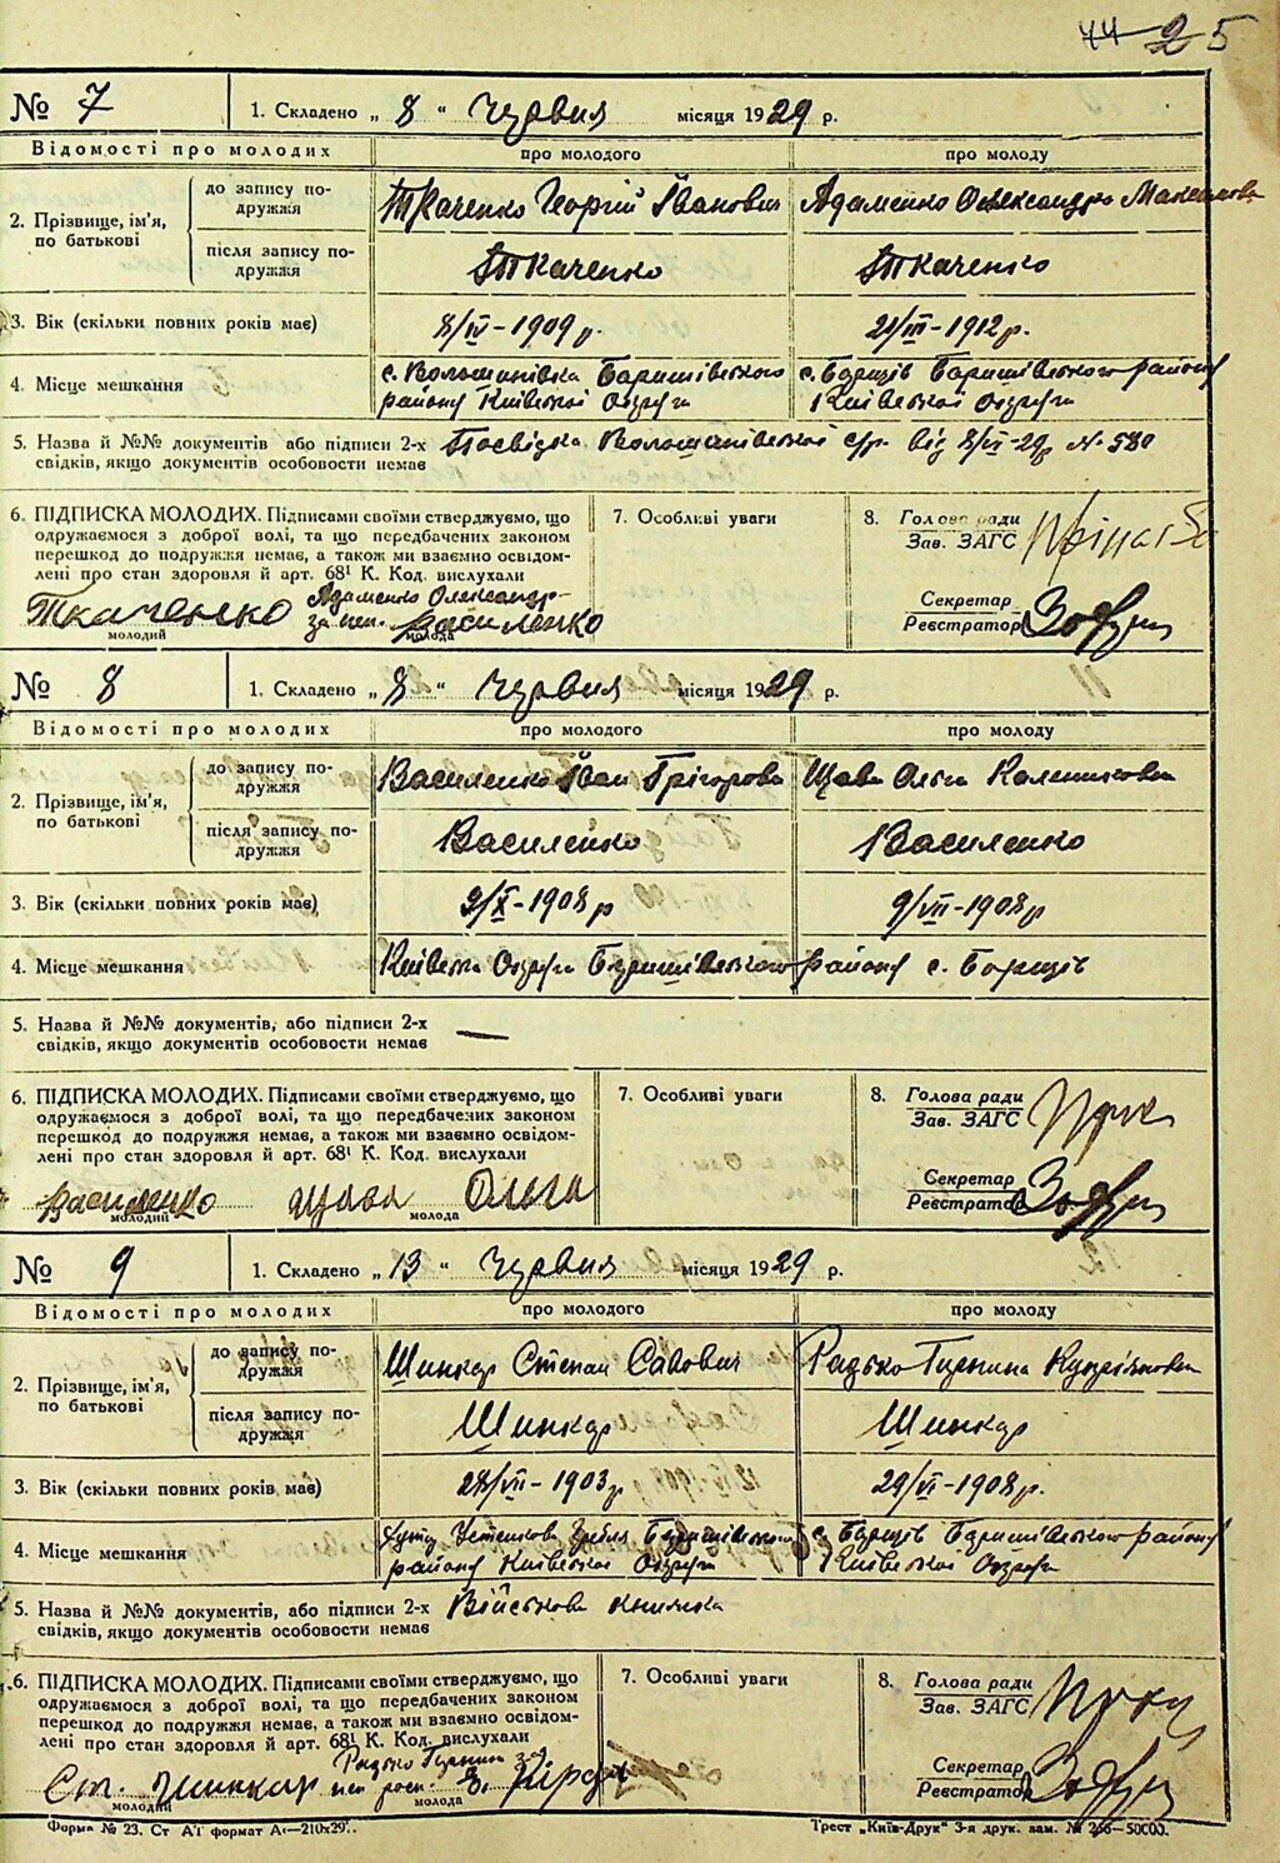 44 25
№ 7 1. Складено „ 8 “ Червня місяця 1929 р.
Відомості про молодих про молодого про молоду
2. Прізвище, ім’я, по батькові
до запису по-
дружжя
Ткаченко Георгій Іванович Адаменко Олександра Максимовна
після запису по-
дружжя
Ткаченко Ткаченко
3. Вік (скільки повних років має) 8/IV-1909 р. 21/III-1912 р.
4. Місце мешкання
с. Волошинівка Баришівського с. Борщів Баришівського району
району Київської Округи Київської Округи
5. Назва й №№ документів або підписи 2-х Посвідка Волошинівської с/р. від 8/VI-29р № 580
свідків, якщо документів особовости немає
6. ПІДПИСКА МОЛОДИХ. Підписами своїми стверджуємо, що
одружаємося з доброї волі, та що передбачених законом
перешкод до подружжя немає, а також ми взаємно освідом-
лені про стан здоровля й арт. 68¹ К. Код. вислухали
Ткаченко Адаменко Олександр
за неп. Василенко
молодий молода
7. Особливі уваги
8. Голова ради
Зав. ЗАГС
Секретар
Реєстратор
№ 8 1. Складено „ 8 “ Червня місяця 1929 р.
Відомості про молодих про молодого про молоду
2. Прізвище, ім’я, по батькові
до запису по-
дружжя
Василенко Іван Грігорова Щава Ольга Калениковна
після запису по-
дружжя
Василенко Василенко
3. Вік (скільки повних років має) 2/X-1908 р 9/VII-1908 р
4. Місце мешкання Київська Округа Баришівського району с. Борщів
5. Назва й №№ документів, або підписи 2-х —
свідків, якщо документів особовости немає
6. ПІДПИСКА МОЛОДИХ. Підписами своїми стверджуємо, що
одружаємося з доброї волі, та що передбачених законом
перешкод до подружжя немає, а також ми взаємно освідом-
лені про стан здоровля й арт. 68¹ К. Код. вислухали
Василенко Щава Ольга
молодий молода
7. Особливі уваги
8. Голова ради
Зав. ЗАГС
Секретар
Реєстратор
№ 9 1. Складено „ 13 “ Червня місяця 1929 р.
Відомості про молодих про молодого про молоду
2. Прізвище, ім’я, по батькові
до запису по-
дружжя
Шинкар Степан Савович Радько Горпина
після запису по-
дружжя
Шинкар Шинкар
3. Вік (скільки повних років має) 28/VII-1903 р 29/VI-1908 р.
4. Місце мешкання
Гребля Баришівського с. Борщів Баришівського району
району Київської Округи Київської Округи
5. Назва й №№ документів, або підписи 2-х Військова книжка
свідків, якщо документів особовости немає
6. ПІДПИСКА МОЛОДИХ. Підписами своїми стверджуємо, що
одружаємося з доброї волі, та що передбачених законом
перешкод до подружжя немає, а також ми взаємно освідом-
лені про стан здоровля й арт. 68¹ К. Код. вислухали
Ст. Шинкар Радько Горпина за
неп росп.
молодий молода
7. Особливі уваги
8. Голова ради
Зав. ЗАГС
Секретар
Реєстратор
Форма № 23. Ст А1 формат А4—210х29.. Трест „Київ-Друк“ 3-я друк. зам. № 266—50000.